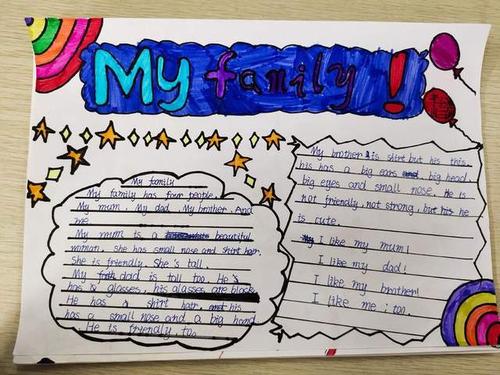 My family!
My family
My family has four people.
My mum. My dad. My brother. And
me.
My mum is a beautiful
woman. she has small nose and shirt hair.
She is friendly. She's tall.
My dad is tall too. He's
has a glasses, his glasses are black.
He has a shirt hair. and his
has a small nose and a big hand
He is friendly to.
My brother is shirt but his this.
his has a big ears and big head.
big eyes and small nose. He is
not friendly, not strong, but his he
is cute.
I like my mum!
I like my dad!
I like my brother!
I like me, too.